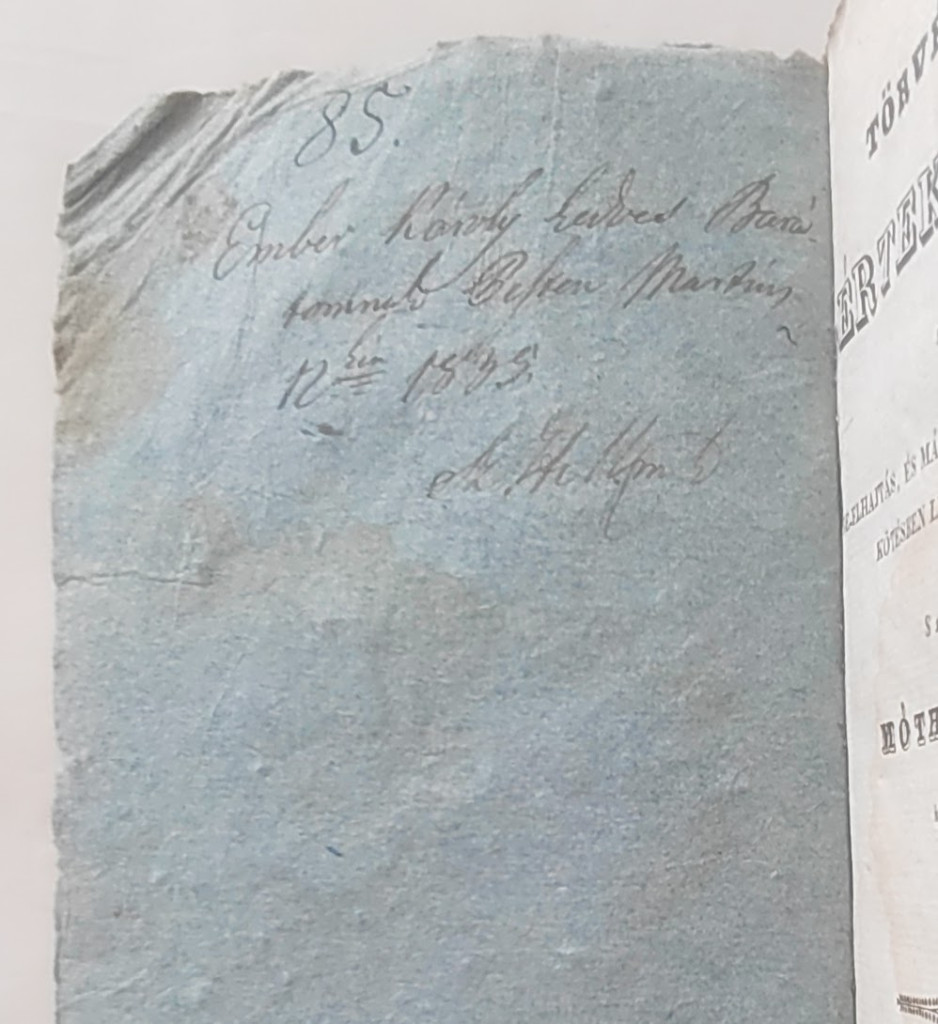 85.
Ember Károly kedves Bará-
tomnak Pesten Martius
12kén 1835.
TÖRV
ÉRTEK
ELHAJTÁS, ÉS MÁ
KÖTÉSBEN L
MÓTH